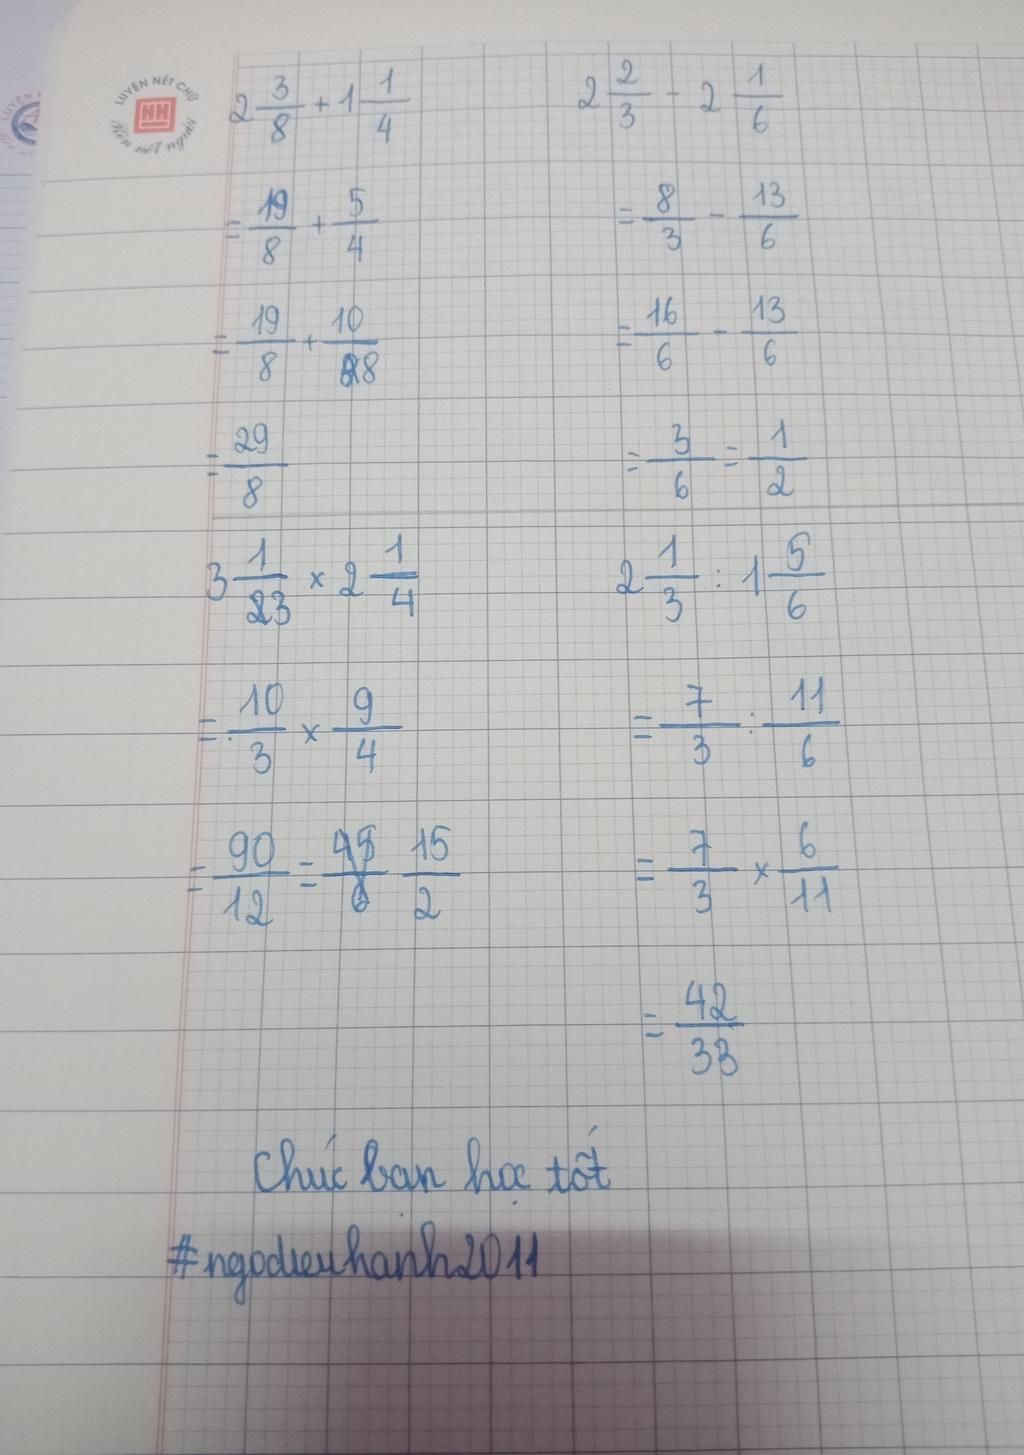 LUYỆN NÉT CHỮ
HH
Rèn nết người
2 3/8 + 1 1/4
= 19/8 + 5/4
= 19/8 + 10/8
= 29/8
2 2/3 - 2 1/6
= 8/3 - 13/6
= 16/6 - 13/6
= 3/6 = 1/2
3 1/3 × 2 1/4
= 10/3 × 9/4
= 90/12 = 15/2
2 1/3 : 1 5/6
= 7/3 : 11/6
= 7/3 × 6/11
= 42/33
Chúc bạn học tốt
#ngodieuhanh2011